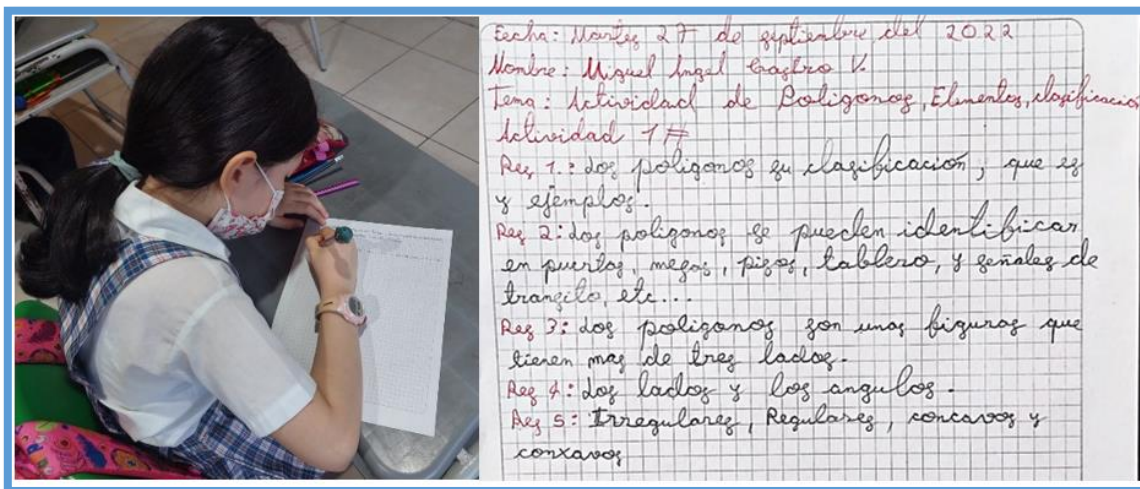 Fecha: Martes 27 de septiembre del 2022
Nombre: Miguel Angel Castro V.
Tema: Actividad de Poligonos, Elementos, clasificacion
Actividad 1#
Res 1.: Los poligonos su clasificación, que es
y ejemplos.
Res 2: Los poligonos se pueden identificar
en puertas, mesas, pisos, tablero, y señales de
transito, etc...
Res 3: Los poligonos son unas figuras que
tienen mas de tres lados.
Res 4: Los lados y los angulos.
Res 5: Irregulares, Regulares, concavos y
conxavos